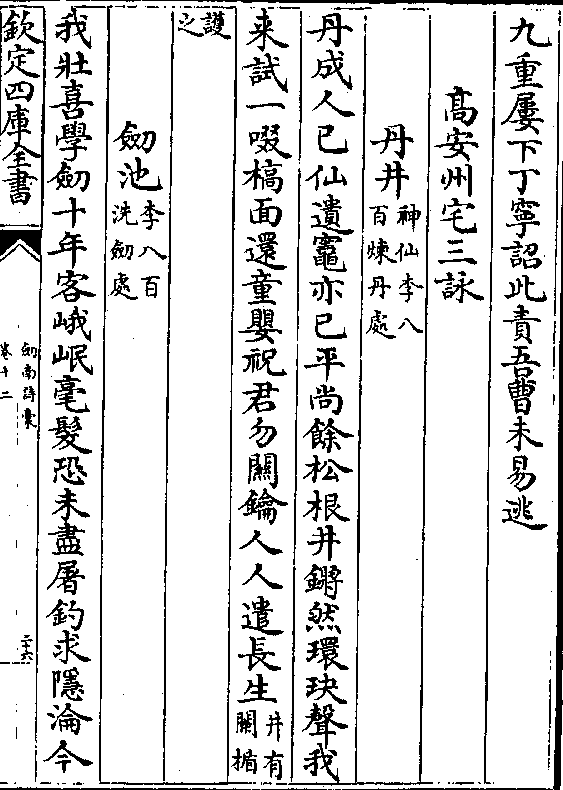 九重屢下丁寧詔此責吾曹未易逃
高安州宅三詠
丹井神仙李八百煉丹處
丹成人已仙遺竈亦已平尚餘松根井鏘然環玦聲我
来試一啜槁面還童嬰祝君勿關鑰人人遣長生井有關楯
護之
劒池李八百洗劒處
我壯喜學劒十年客峨岷毫髮恐未盡屠釣求隱淪今
欽定四庫全書
劒南詩稾
卷十二
二十六